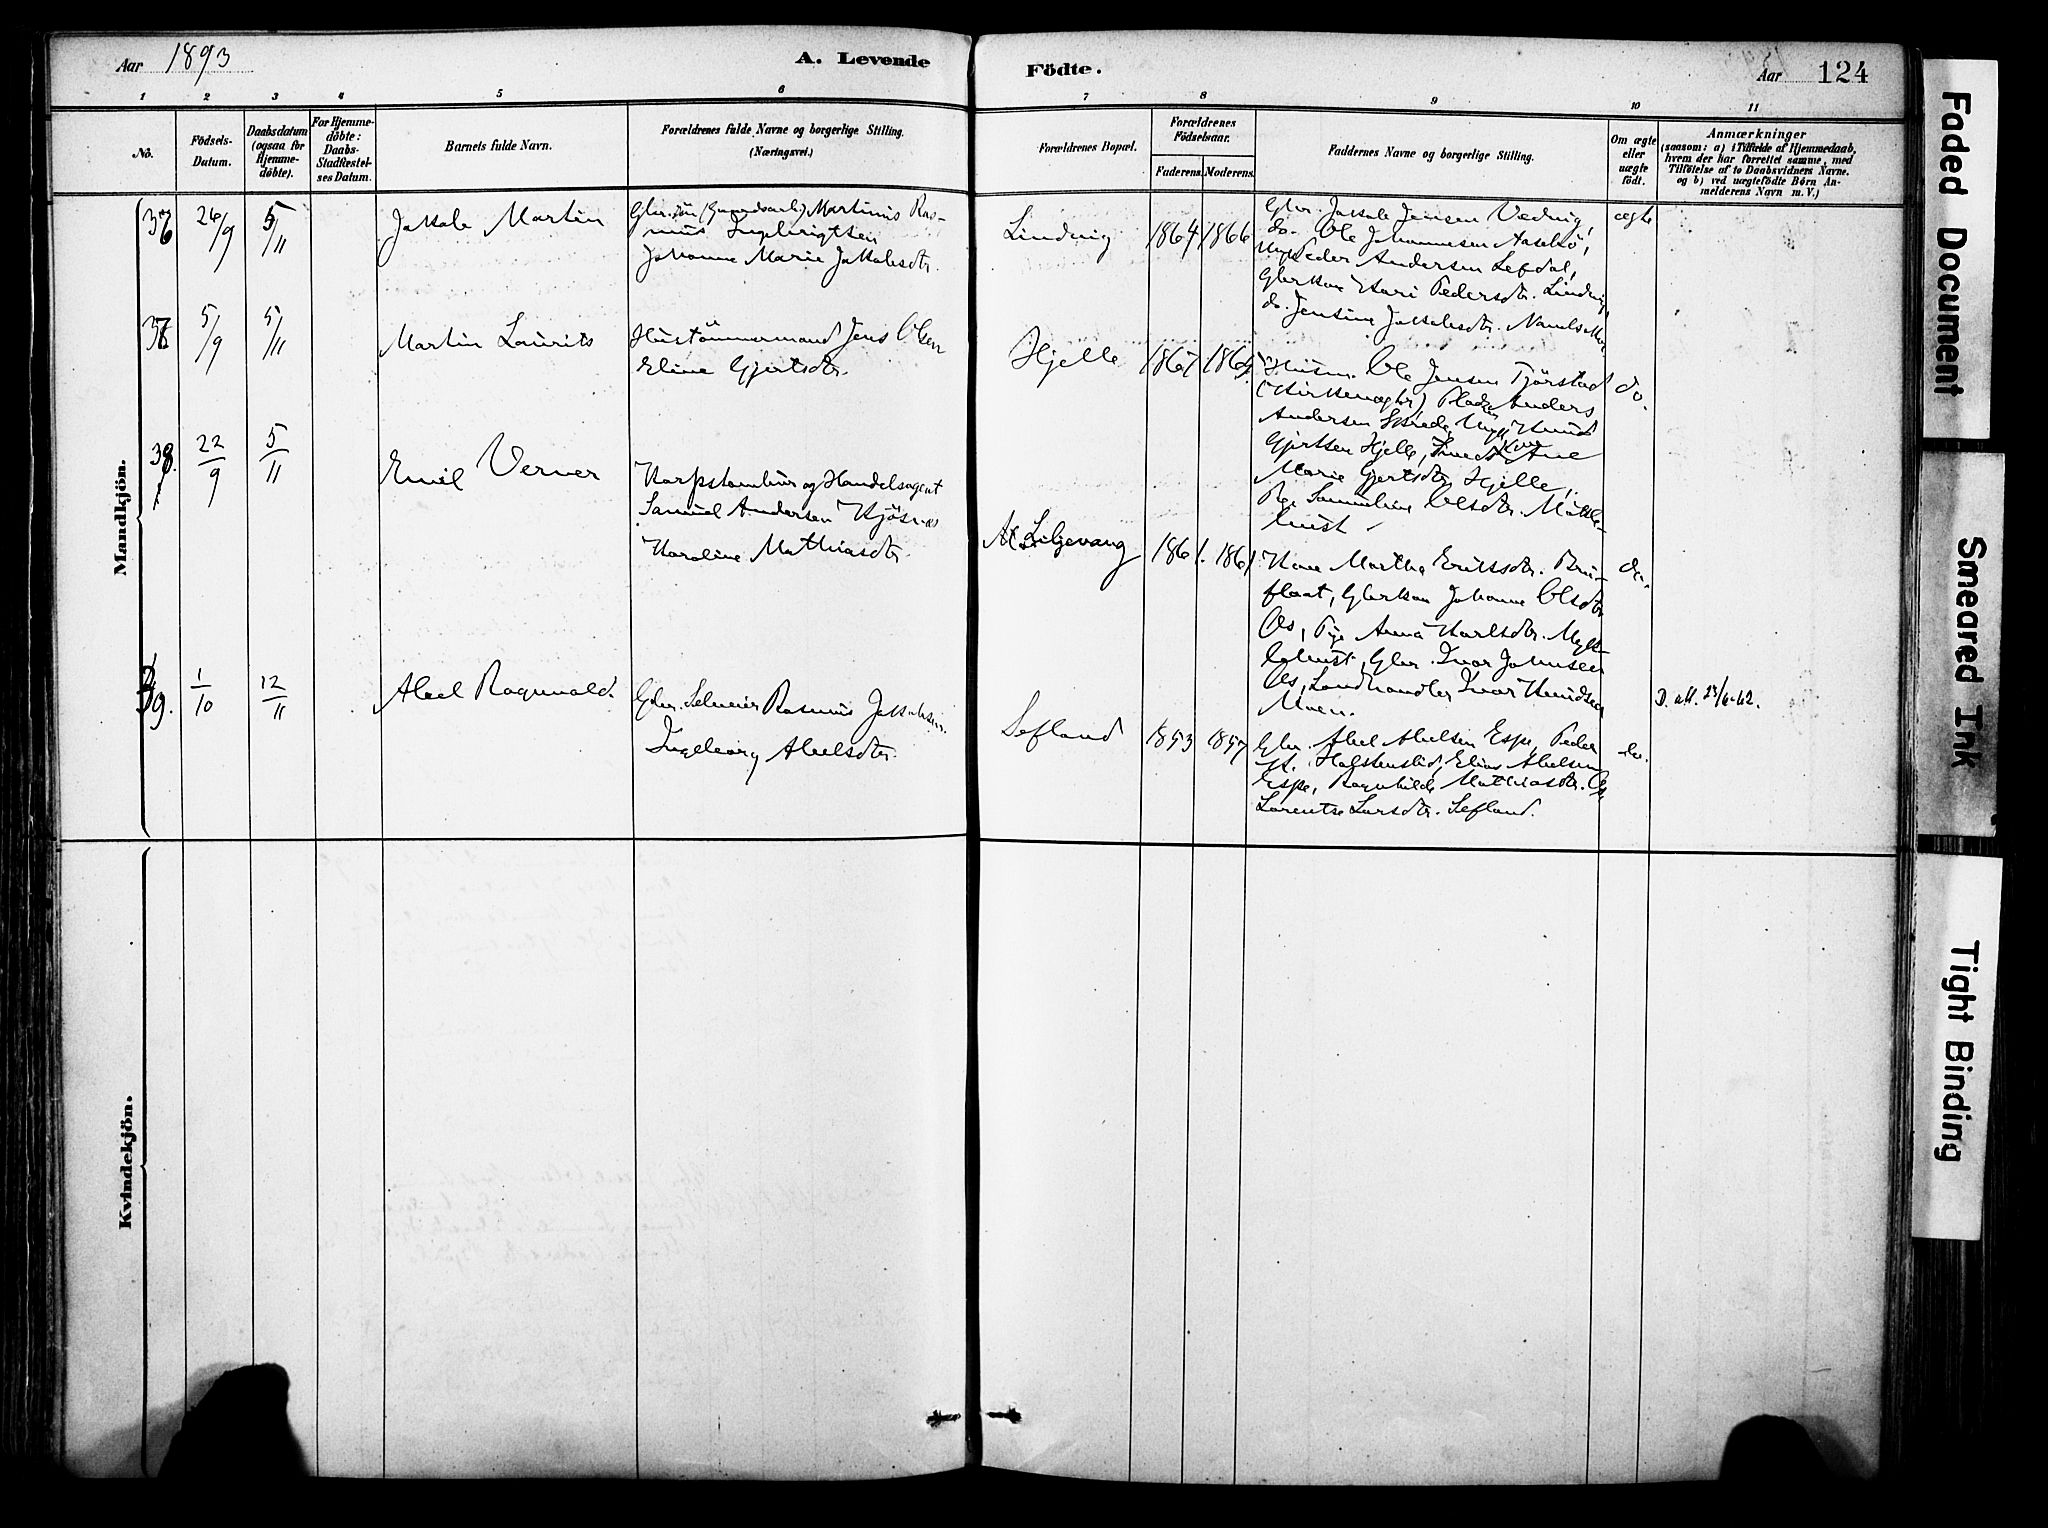 Aar 1893
A. Levende
Födte.
Aar 124
1 2 3 4 5 6 7 8 9 10 11
No.
Födsels-
Datum.
Daabsdatum
(ogsaa for
Hjemme-
döbte).
For Hjemme-
döbte:
Daabs-
Stadfæstel-
ses Datum.
Barnets fulde Navn.
Forældrenes fulde Navne og borgerlige Stilling.
(Næringsvei.)
Forældrenes Bopæl.
Forældrenes
Födselsaar.
Faderens. Moderens.
Faddernes Navne og borgerlige Stilling.
Om ægte
eller
uægte
födt.
Anmærkninger
(saasom: a) i Tilfælde af Hjemmedaab,
hvem der har forrettet samme, med
Tilföielse af to Daabsvidners Navne.
og b) ved uægtefödte Börn An-
melderens Navn m. V.)
Mandkjön.
36 26/9 5/11 Jakob Martin
Martinus Ras-
mus Ingebrigtsen
Johanne Marie Jakobsdtr.
Lindvig 1864 1866
Gbr. Jakob Jensen Vedvig,
do. Ole Johannesen Aaselsö,
Peder Andersen Lefdal,
Gbrkone Kari Pedersdtr. Lindvig
do. Jensine Jakobsdtr.
ægte
37 5/9 5/11 Martin Laurits
Hustömmermand Jens Olsen
Eline Gjertsdtr.
Hjelle 1867
Husm. Ole Jensen Tjörstad
Anders
Andersen Knud
Gjertsen Hjelle, Ane
Marie Gjertsdtr. Hjelle,
Olsdtr. Mökle-
bust
do.
38. 22/9 5/11 Emil Verner
Korpstambur og Handelsagent
Samuel Andersen Kjösnæs
Karoline Mathiasdtr.
Liljevang 1861. 1861
Kone Marthe Eriksdtr.
flaat, Gbrkone Johanne Olsdtr
Os, Pige Anna Karlsdtr. Mykl-
ebust, Gbr. Ivar Johnsen
Os, Landhandler Ivar Knudsen
Moen.
do.
39. 1/10 12/11 Abel Ragnvald.
Gbr. Selveier Rasmus Jakobsen
Ingeborg Abelsdtr.
Lefland 1853 1857
Gbr. Abel Abelsen Espe, Peder
Elias Abelsen
Espe, Ragnhilde Mathiasdtr. Os
Lorentse Larsdtr. Lefland.
do.
D. att. 23/6-62.
Kvindekjön.
Faded Document
Smeared Ink
Tight Binding